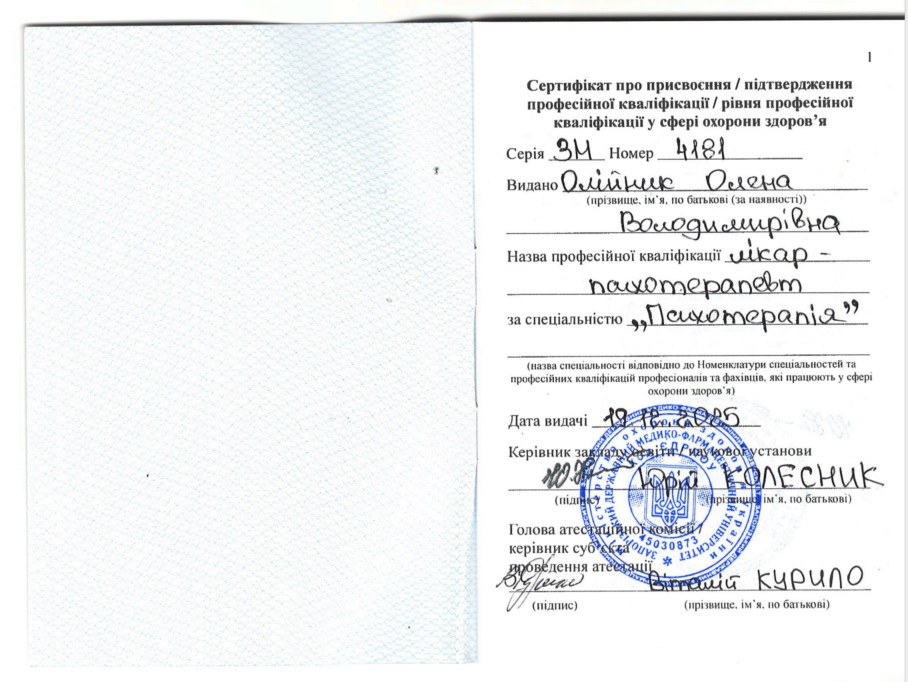 1
Сертифікат про присвоєння / підтвердження
професійної кваліфікації / рівня професійної
кваліфікації у сфері охорони здоров’я
Серія ЗМ Номер 4181
Видано Олійник Олена
(прізвище, ім’я, по батькові (за наявності))
Володимирівна
Назва професійної кваліфікації лікар -
психотерапевт
за спеціальністю „Психотерапія”
(назва спеціальності відповідно до Номенклатури спеціальностей та
професійних кваліфікацій професіоналів та фахівців, які працюють у сфері
охорони здоров’я)
Дата видачі 19.12.2025
Керівник закладу освіти / наукової установи
Юрій КОЛЕСНИК
(підпис) (прізвище, ім’я, по батькові)
Міністерство охорони здоров’я України
ЗАПОРІЗЬКИЙ ДЕРЖАВНИЙ МЕДИКО-ФАРМАЦЕВТИЧНИЙ УНІВЕРСИТЕТ
45030873
Голова атестаційної комісії /
керівник суб’єкта
проведення атестації
Віталій КУРИЛО
(підпис) (прізвище, ім’я, по батькові)